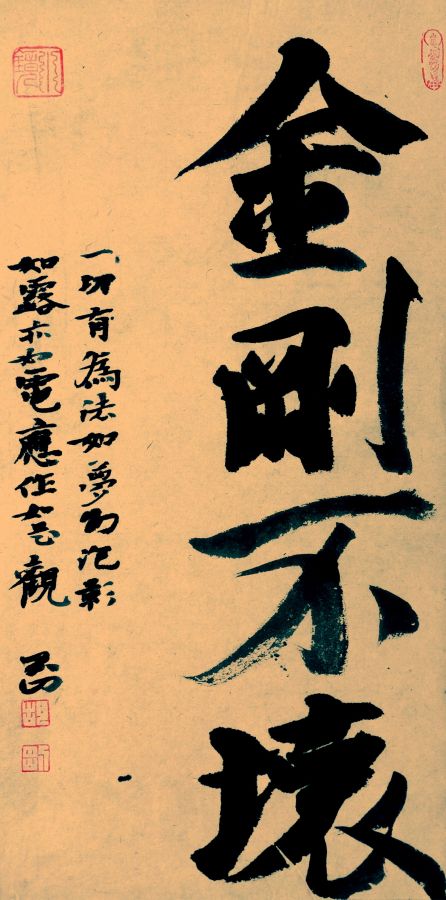 金剛不壞
一切有為法如夢幻泡影
如露亦如電應作如是觀